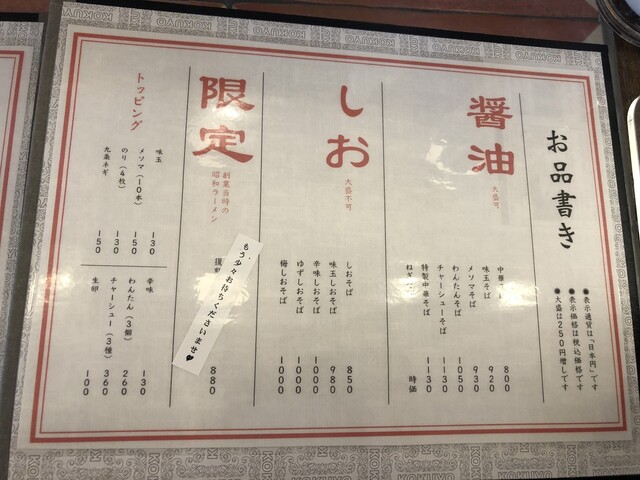 お品書き
●表示通貨は「日本円」です
●表示価格は税込価格です
●大盛は250円増しです
醤油
大盛可
中華そば 800
味玉そば 920
メンマそば 930
わんたんそば 1050
チャーシューそば 1130
特製中華そば 1130
ねぎ 時価
しお
大盛不可
しおそば 850
味玉しおそば 980
辛味しおそば 1000
ゆずしおそば 1000
梅しおそば 1000
限定
創業当時の
昭和ラーメン
復 880
もう少々お待ちくださいませ♥
トッピング
味玉 130
メンマ(10本) 150
のり(4枚) 130
九条ネギ 150
辛味 130
わんたん(3個) 260
チャーシュー(3種) 360
生卵 100
KOKUYO